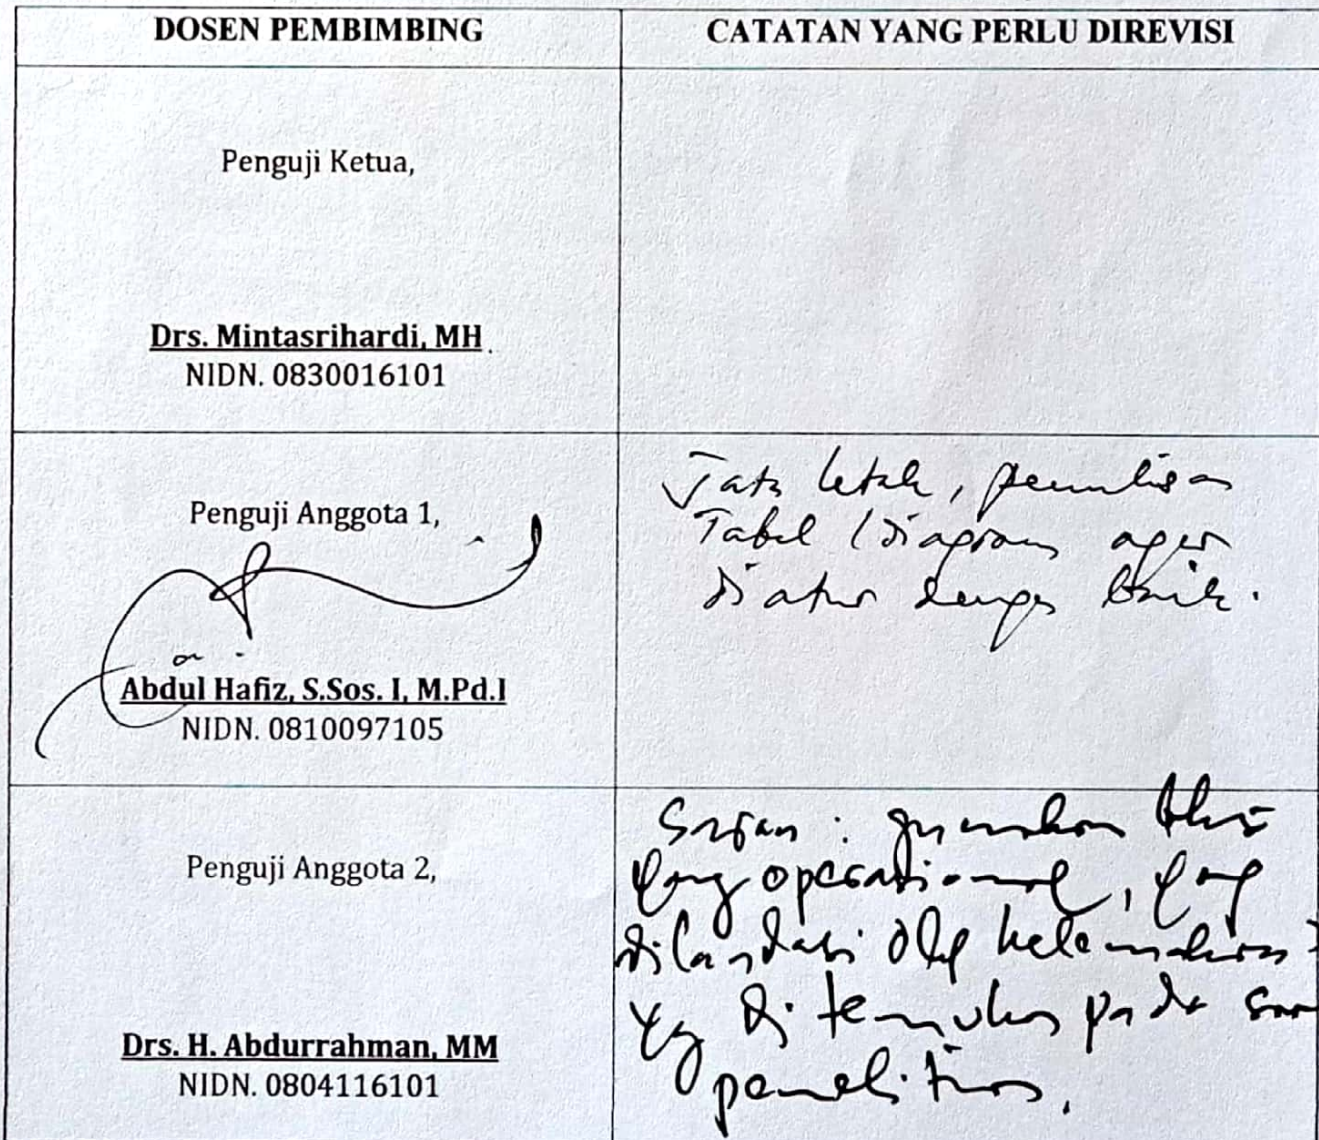 DOSEN PEMBIMBING
CATATAN YANG PERLU DIREVISI
Penguji Ketua,
Drs. Mintasrihardi, MH
NIDN. 0830016101
Penguji Anggota 1,
Abdul Hafiz, S.Sos. I, M.Pd.I
NIDN. 0810097105
Tata letak, penulisan
Tabel / diagram agar
diatur dengan baik.
Penguji Anggota 2,
Drs. H. Abdurrahman, MM
NIDN. 0804116101
Saran : gunakan
yang operasional, yang
dilandasi oleh kelemahan2
yg ditemukan pada saat
penelitian.